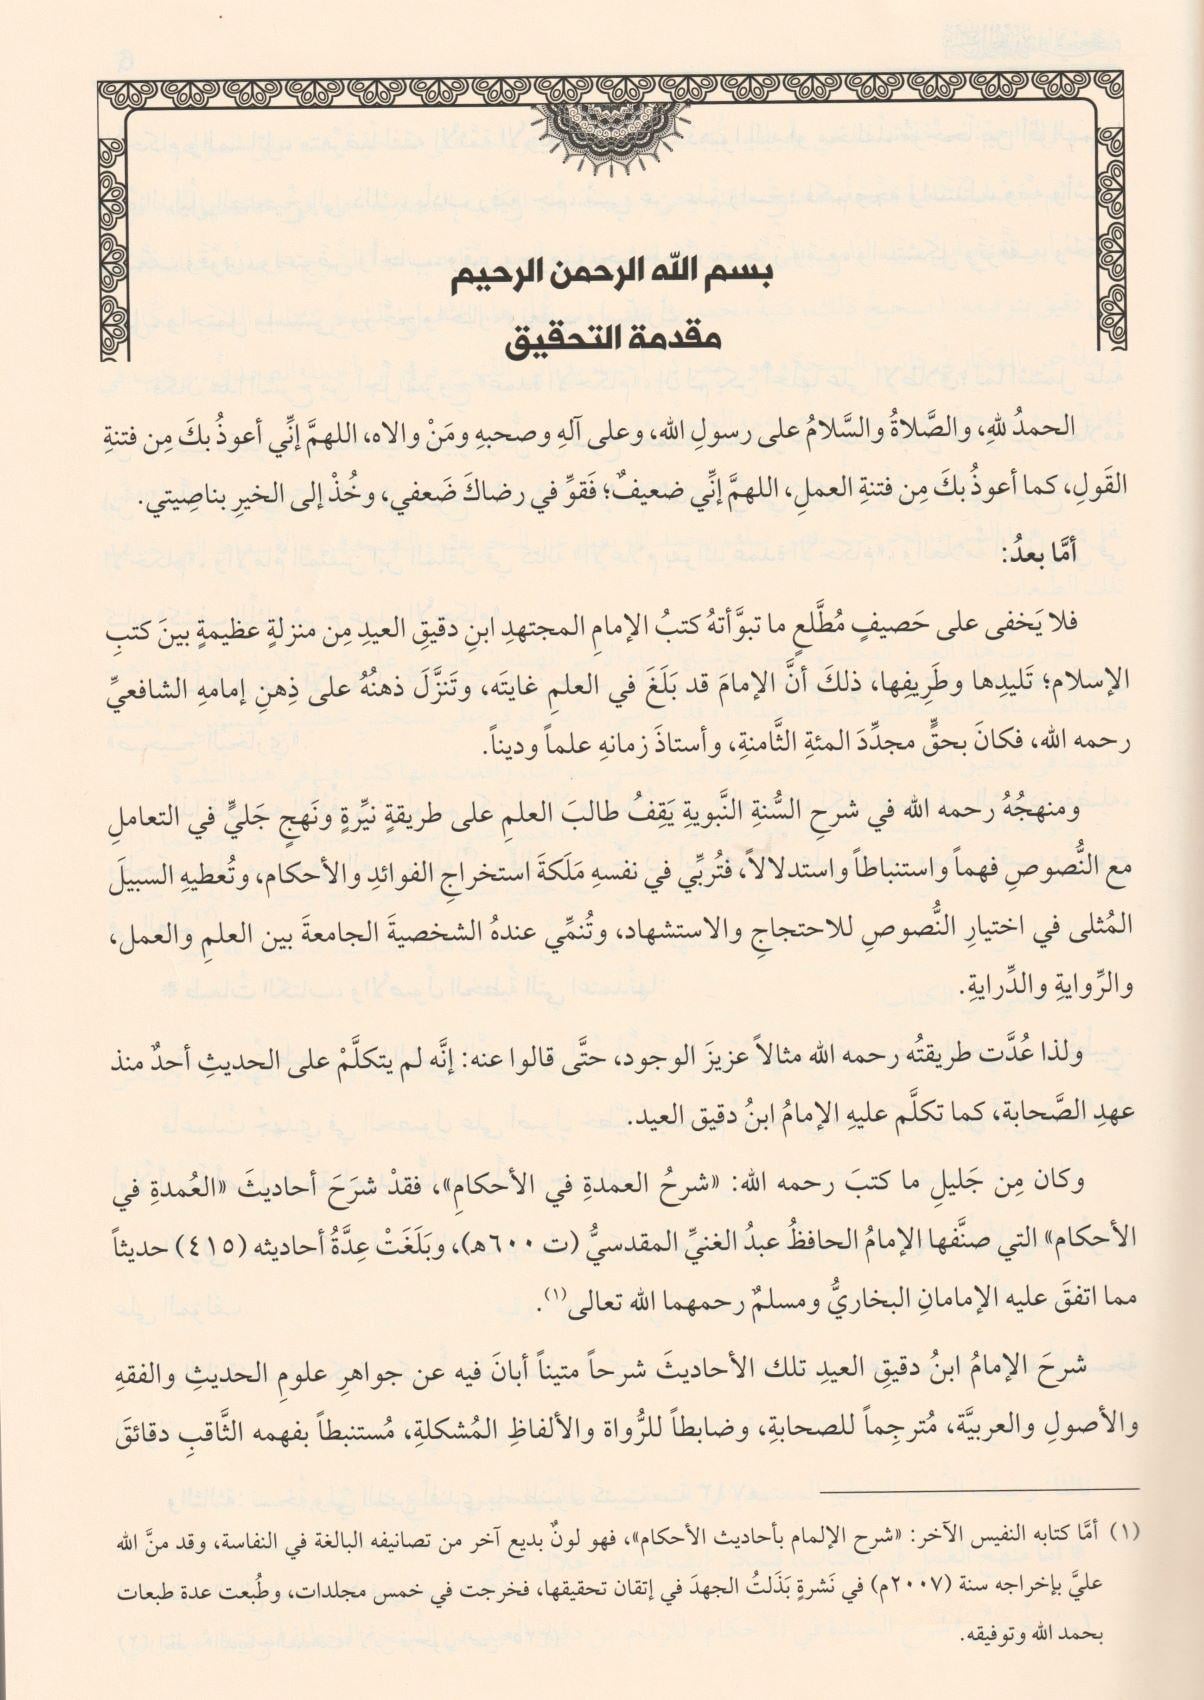 بسم الله الرحمن الرحيم
مقدمة التحقيق
الحمدُ للهِ، والصَّلاةُ والسَّلامُ على رسولِ الله، وعلى آلهِ وصحبهِ ومَنْ والاه، اللهمَّ إنِّي أعوذُ بكَ مِن فتنةِ
القَولِ، كما أعوذُ بكَ مِن فتنةِ العملِ، اللهمَّ إنِّي ضعيفٌ؛ فَقوِّ في رضاكَ ضَعفي، وخُذْ إلى الخيرِ بناصِيتي.
أمَّا بعدُ:
فلا يَخفى على حَصيفٍ مُطَّلعٍ ما تبوَّأتهُ كتبُ الإمامِ المجتهدِ ابنِ دقيقِ العيدِ مِن منزلةٍ عظيمةٍ بينَ كتبِ
الإسلام؛ تَليدِها وطَرِيفِها، ذلكَ أنَّ الإمامَ قد بَلَغَ في العلمِ غايتَه، وتَنزَّلَ ذهنُهُ على ذِهنِ إمامهِ الشافعيِّ
رحمه الله، فكانَ بحقٍّ مجدِّدَ المئةِ الثَّامنةِ، وأستاذَ زمانهِ علماً وديناً.
ومنهجُهُ رحمه الله في شرحِ السُّنةِ النَّبويةِ يَقِفُ طالبَ العلمِ على طريقةٍ نيِّرةٍ ونَهجٍ جَليٍّ في التعاملِ
مع النُّصوصِ فهماً واستنباطاً واستدلالاً، فتُربِّي في نفسهِ مَلَكةَ استخراجِ الفوائدِ والأحكام، وتُعطيهِ السبيلَ
المُثلى في اختيارِ النُّصوصِ للاحتجاجِ والاستشهاد، وتُنمِّي عندهُ الشخصيةَ الجامعةَ بين العلمِ والعمل،
والرِّوايةِ والدِّرايةِ.
ولذا عُدَّت طريقتُه رحمه الله مثالاً عزيزَ الوجود، حتَّى قالوا عنه: إنَّه لم يتكلَّمْ على الحديثِ أحدٌ منذ
عهدِ الصَّحابة، كما تكلَّم عليهِ الإمامُ ابنُ دقيق العيد.
وكان مِن جَليلِ ما كتبَ رحمه الله: «شرحُ العمدةِ في الأحكامِ»، فقدْ شرَحَ أحاديثَ «العُمدةِ في
الأحكام» التي صنَّفها الإمامُ الحافظُ عبدُ الغنيِّ المقدسيُّ (ت ٦٠٠هـ)، وبَلَغَتْ عِدَّةُ أحاديثه (٤١٥) حديثاً
مما اتفقَ عليه الإمامانِ البخاريُّ ومسلمٌ رحمهما الله تعالى(١).
شرحَ الإمامُ ابنُ دقيقِ العيدِ تلك الأحاديثَ شرحاً متيناً أبانَ فيه عن جواهرِ علومِ الحديثِ والفقهِ
والأصولِ والعربيَّة، مُترجِماً للصحابةِ، وضابطاً للرُّواة والألفاظِ المُشكلةِ، مُستنبطاً بفهمه الثَّاقبِ دقائقَ
(١) أمَّا كتابه النفيس الآخر: «شرح الإلمام بأحاديث الأحكام»، فهو لونٌ بديع آخر من تصانيفه البالغة في النفاسة، وقد منَّ الله
عليَّ بإخراجه سنة (٢٠٠٧م) في نَشرةٍ بَذَلتُ الجهدَ في إتقان تحقيقها، فخرجت في خمس مجلدات، وطُبعت عدة طبعات
بحمد الله وتوفيقه.